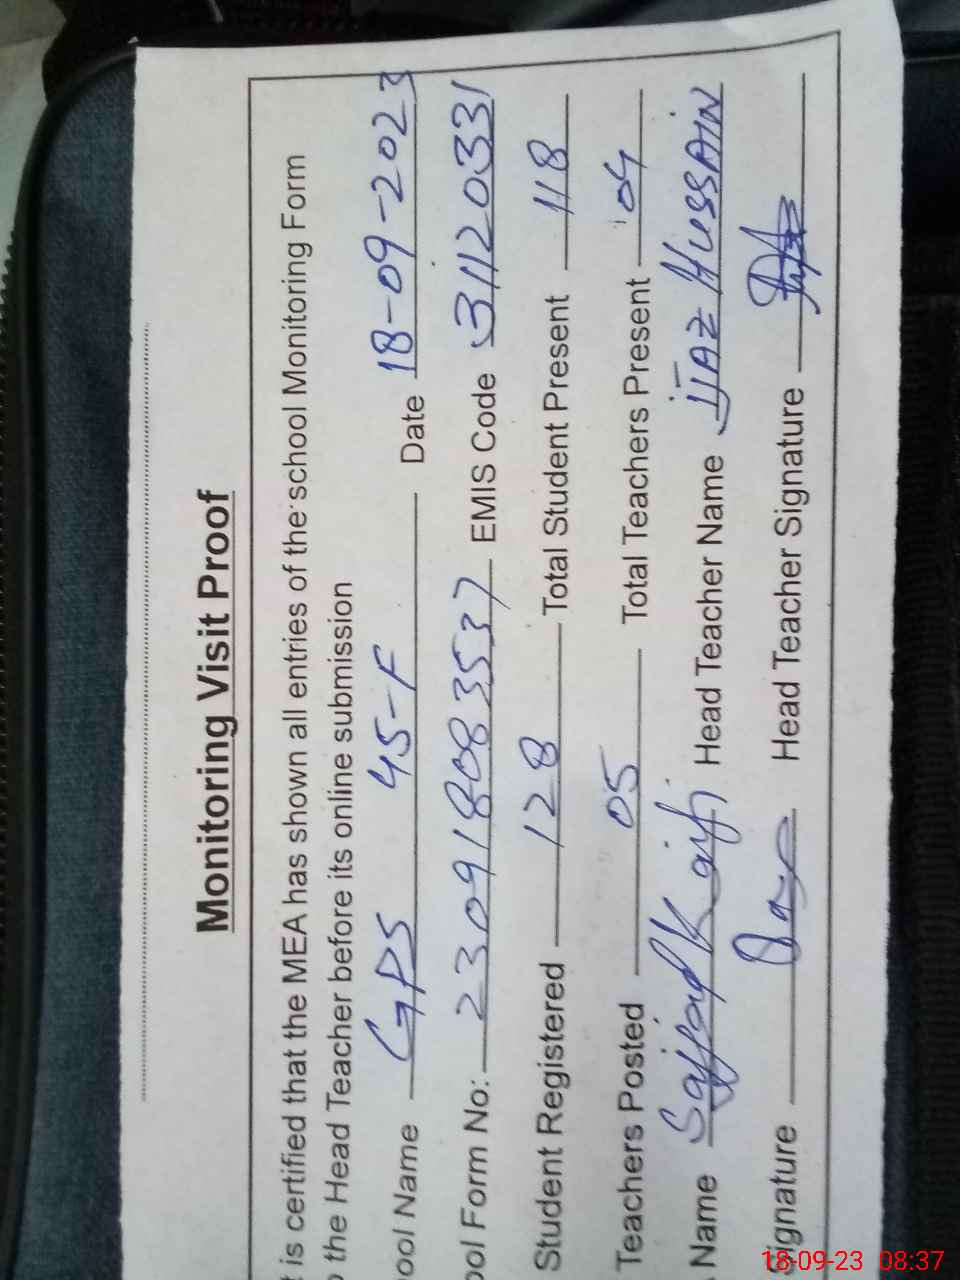 Monitoring Visit Proof
t is certified that the MEA has shown all entries of the school Monitoring Form
o the Head Teacher before its online submission
ool Name GPS 45-F Date 18-09-2023
ool Form No: 230918083537 EMIS Code 31112033
Student Registered 128 Total Student Present 118
Teachers Posted 05 Total Teachers Present 04
Name Sajjad Kaifi Head Teacher Name IJAZ HUSSAIN
Signature Head Teacher Signature
18-09-23 08:37